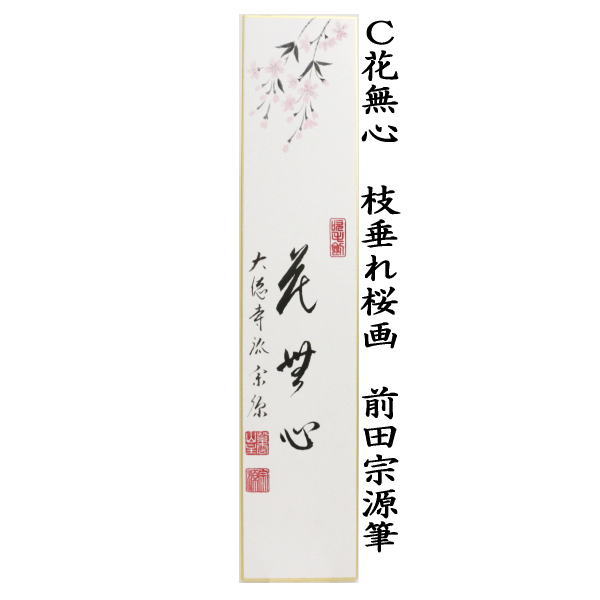 C花無心 枝垂れ桜画 前田宗源筆
花無心
大徳寺派宗源